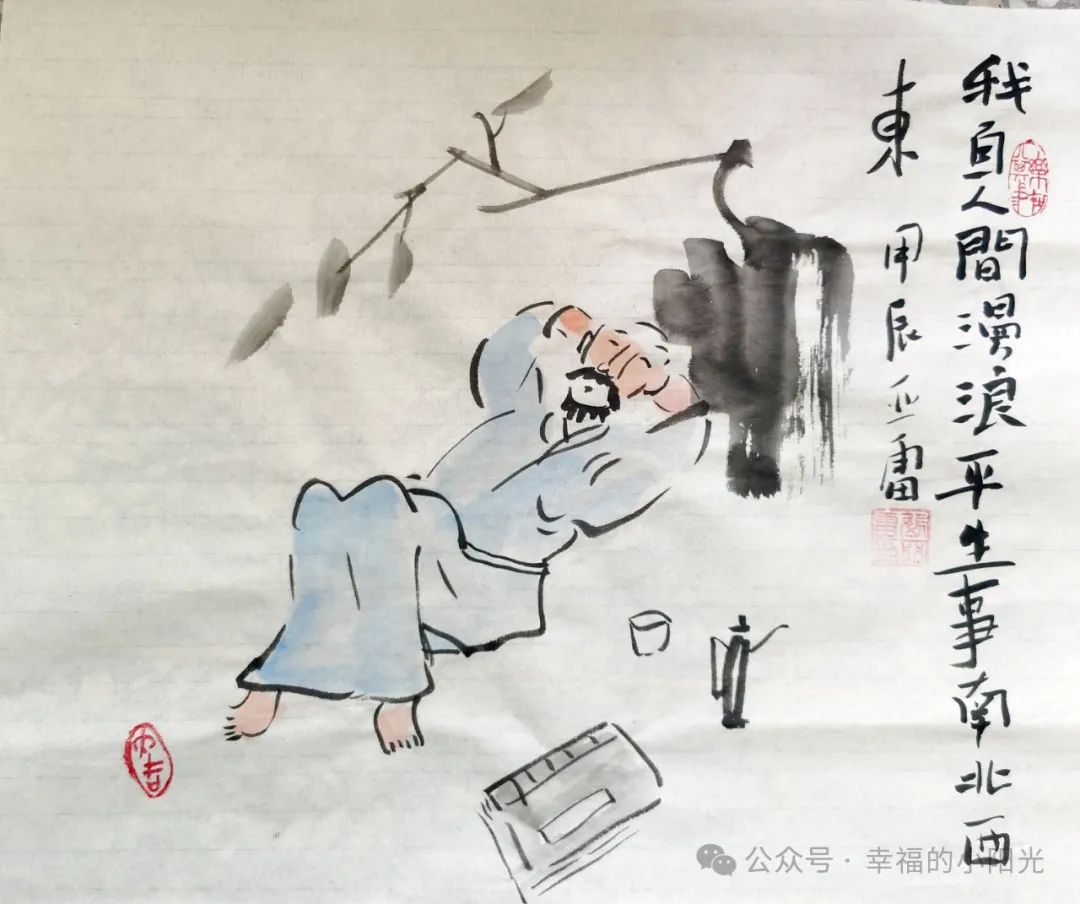 我自人間漫浪平生事南北西
東 甲辰 亚雷
公众号 · 幸福的小阳光